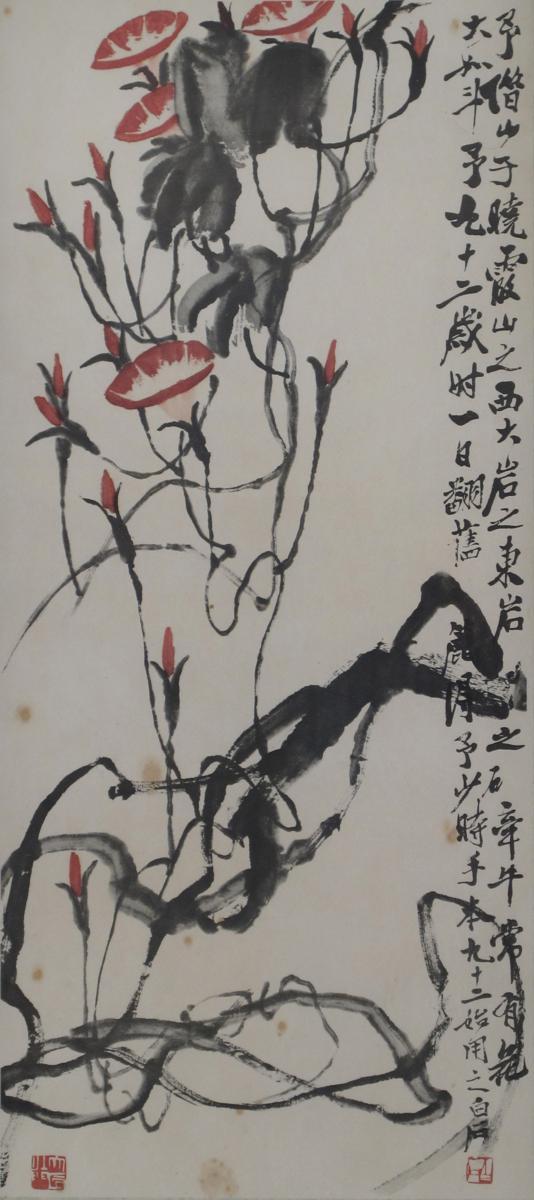 予借山于曉霞山之西大岩之東岩之石牽牛常有花
大如斗予九十二歲时一日翻舊得予少時手本九十二始用之白石